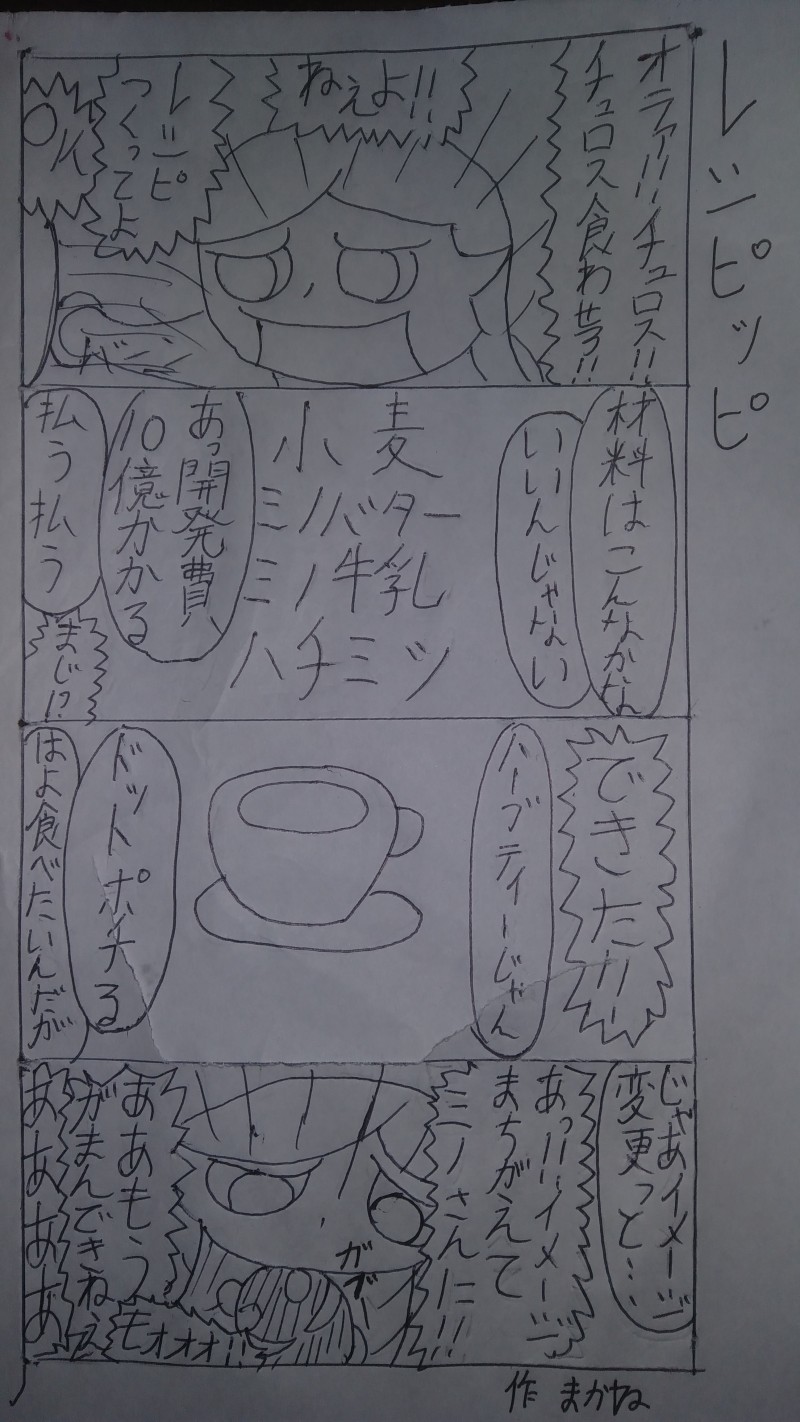 レシピッピ
オラァ!!チュロス!!
チュロス食わせろ!!
ねぇよ!!
レシピ
つくってよ
バーン
材料はこんなかな
いいんじゃない
小麦
ミノバター
ミノ牛乳
ハチミツ
あっ開発費、
10億かかる
払う払う
まじ!?
できた!!
ハーブティーじゃん
ドットポチる
はよ食べたいんだが
じゃあイメージ
変更っと…
あっ!!イメージ
まちがえて
ミノさんに!!
ガブー
ああもう
がまんできねぇ
ああああ
もォォォ!!
作 まかね